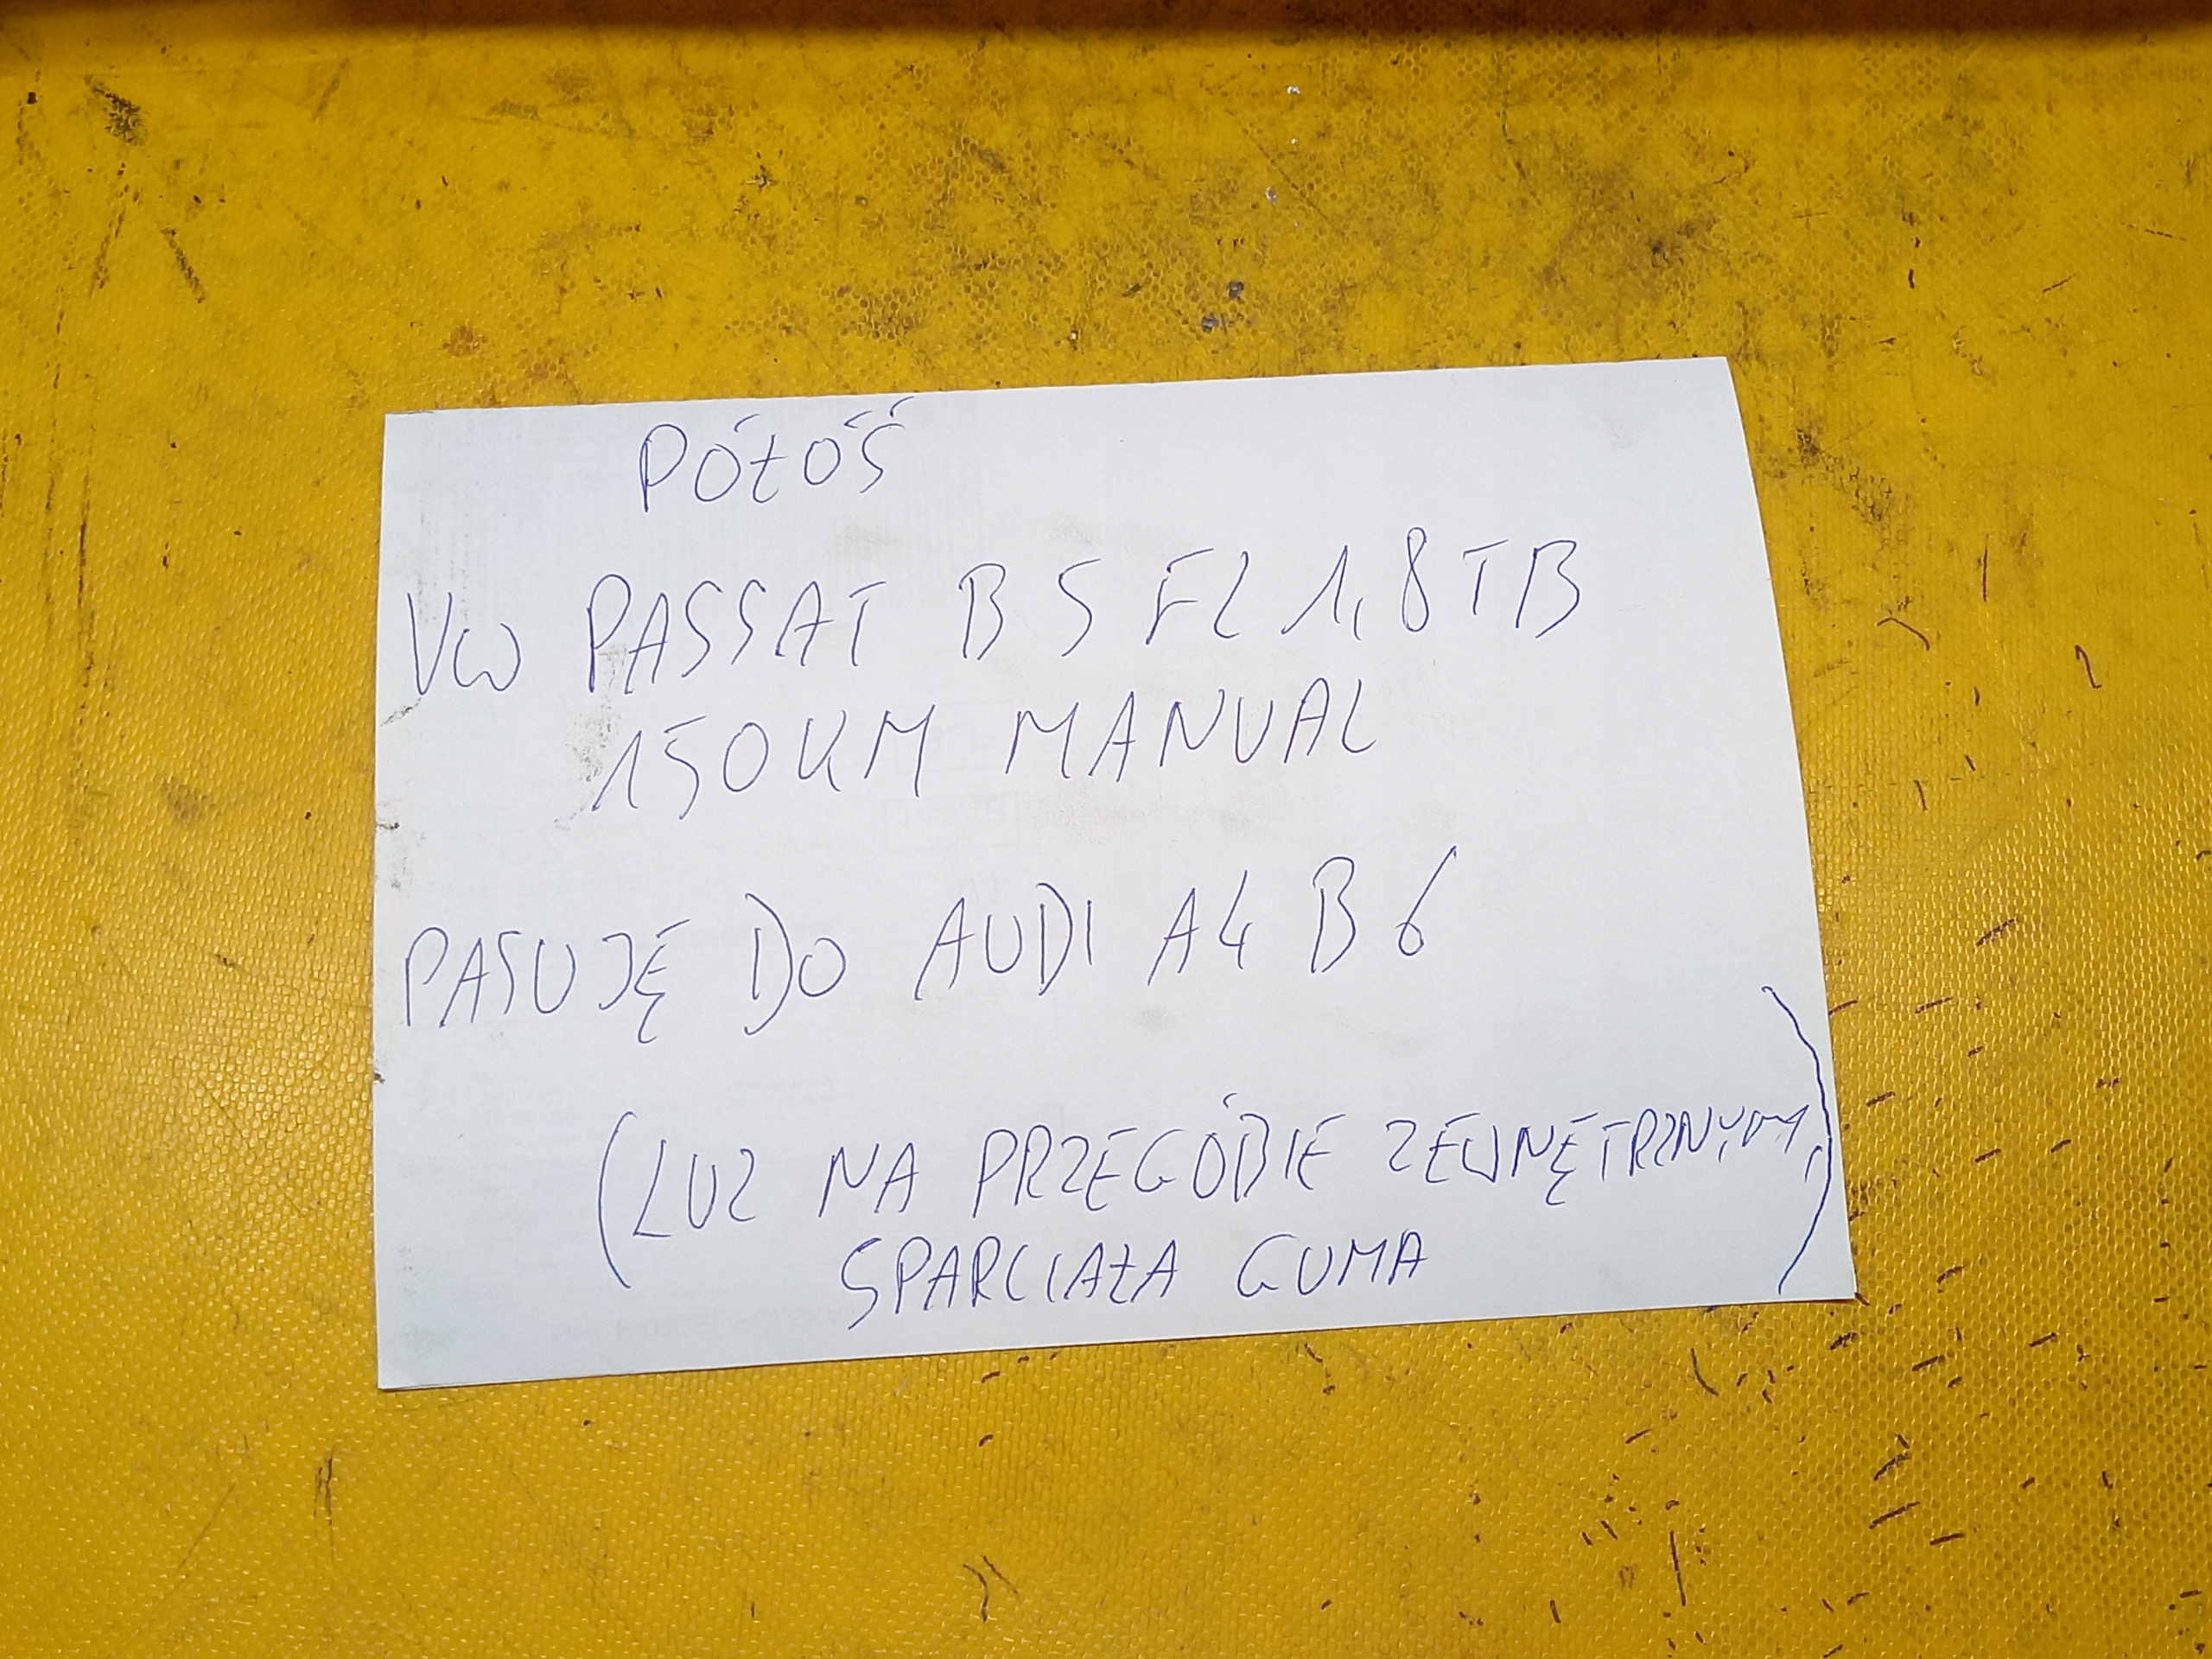 PÓŁOŚ
VW PASSAT B5 FL 1,8TB
150KM MANUAL
PASUJĘ DO AUDI A4 B6
(LUZ NA PRZEGÓBIE ZEWNĘTRZNYM,
SPARCIAŁA GUMA)